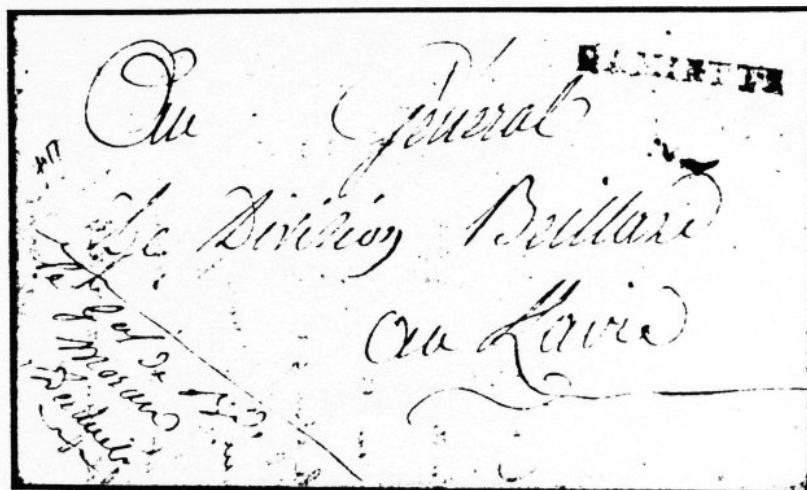 DAMIETTE
Au Général
de Division Belliard
au Kaire
le Gal De
Morand